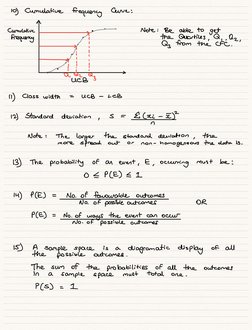 10) Cumulative frequency Curve:
Cumulative
Frequency
Note: Be able to get
the Quartiles, Q₁, Q₂,
Q₃ from the CFC.
Q₁ Q₂ Q₃
UCB
11) Class width = UCB - LCB
12) Standard deviation, s = Σ(xᵢ - x̄)²
n
Note: The larger the standard deviation, the
more spread out or non-homogenous the data is.
13) The probability of an event, E, occurring must be:
0 ≤ P(E) ≤ 1
14) P(E) = No. of favourable outcomes
No. of possible outcomes
OR
P(E) = No. of ways the event can occur
No. of possible outcomes
15) A sample space is a diagramatic display of all
the possible outcomes.
The sum of the probabilities of all the outcomes
in a sample space must total one.
P(S) = 1